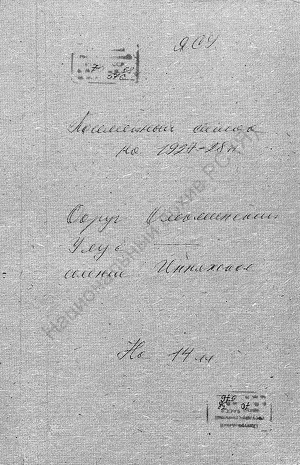 ЯСУ
Посемейный список
на 1927-28 г.
Округ Олекминский
Улус ———
селение Инняхское
На 14 лл
Национальный архив РС(Я)